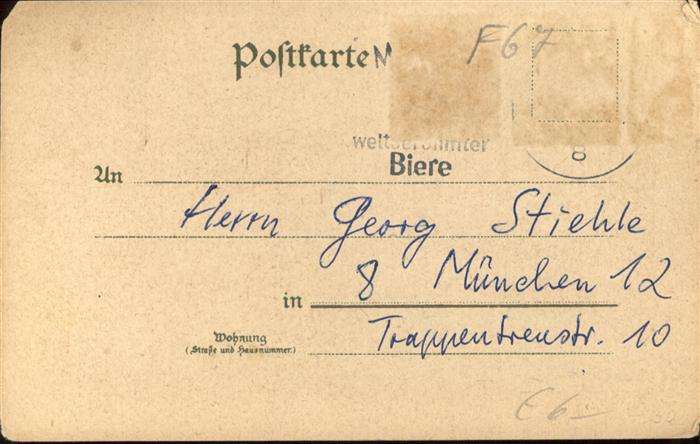 Postkarte M
F67
weltberühmter
Biere
8
An
Herrn Georg Stiehle
8 München 12
in
Trappentreustr. 10
Wohnung
(Straße und Hausnummer)
E 6-